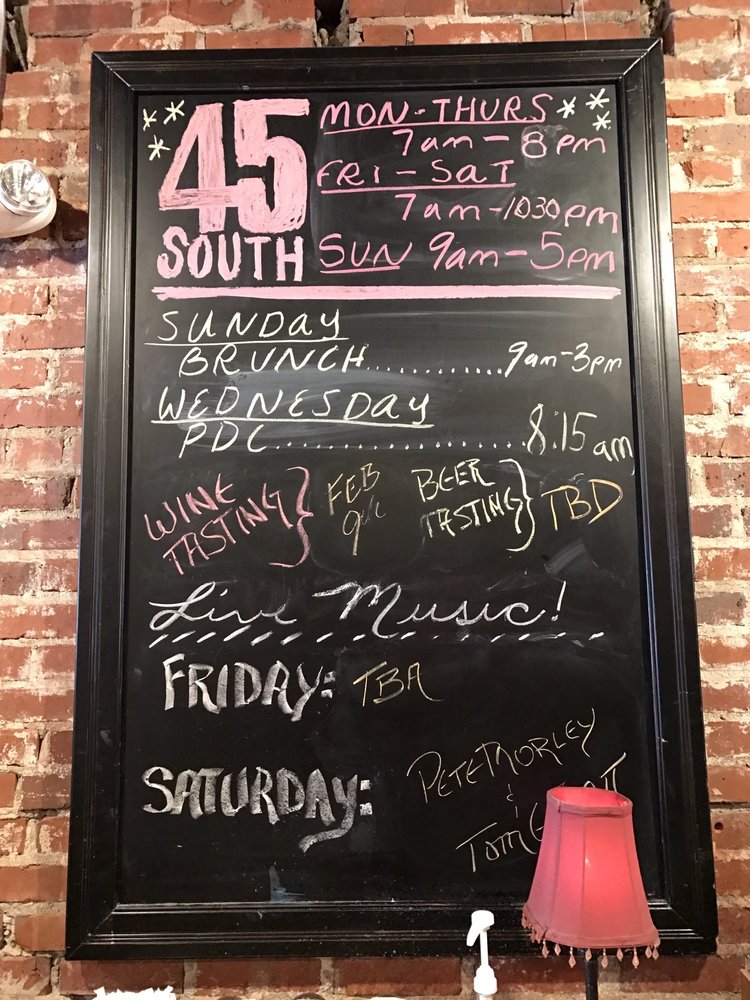 45
SOUTH
MON-THURS
7am-8pm
FRI-SAT
7am-1030pm
SUN 9am-5pm
SUNDAY
BRUNCH............9am-3pm
WEDNESDAY
PDC....................8:15am
WINE
TASTING } FEB
9th
BEER
TASTING } TBD
Live Music!
FRIDAY: TBA
SATURDAY: PETE MORLEY
&
TOM